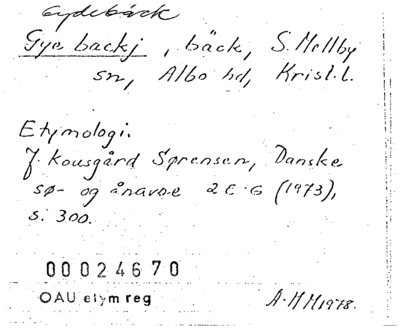 Gydebäck
Gye backj, bäck, S. Mellby
sn, Albo hd, Krist.l.
Etymologi:
J. Kousgård Sørensen, Danske
sø- og ånavne 2 E-G (1973),
s. 300.
00024670
OAU etym reg A-MM 1978.